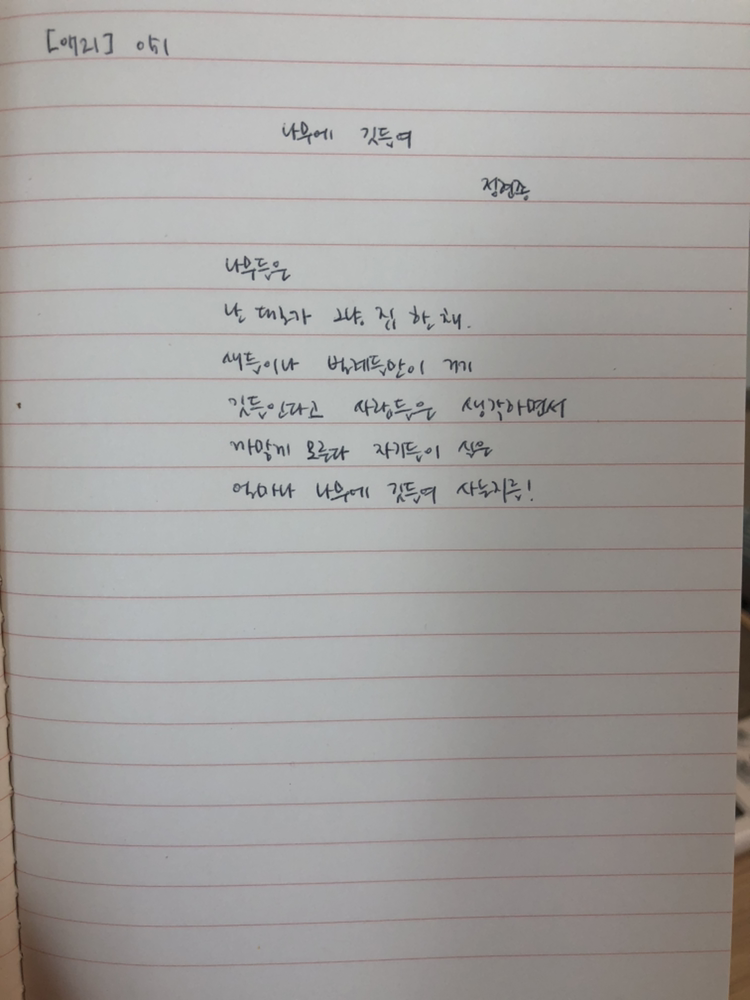 [애리]
나무에 깃들여
정현종
나무들은
난 대로가 그냥 집 한 채.
새들이나 벌레들만이 거기
깃들인다고 사람들은 생각하면서
까맣게 모른다 자기들이 실은
얼마나 나무에 깃들여 사는지를!